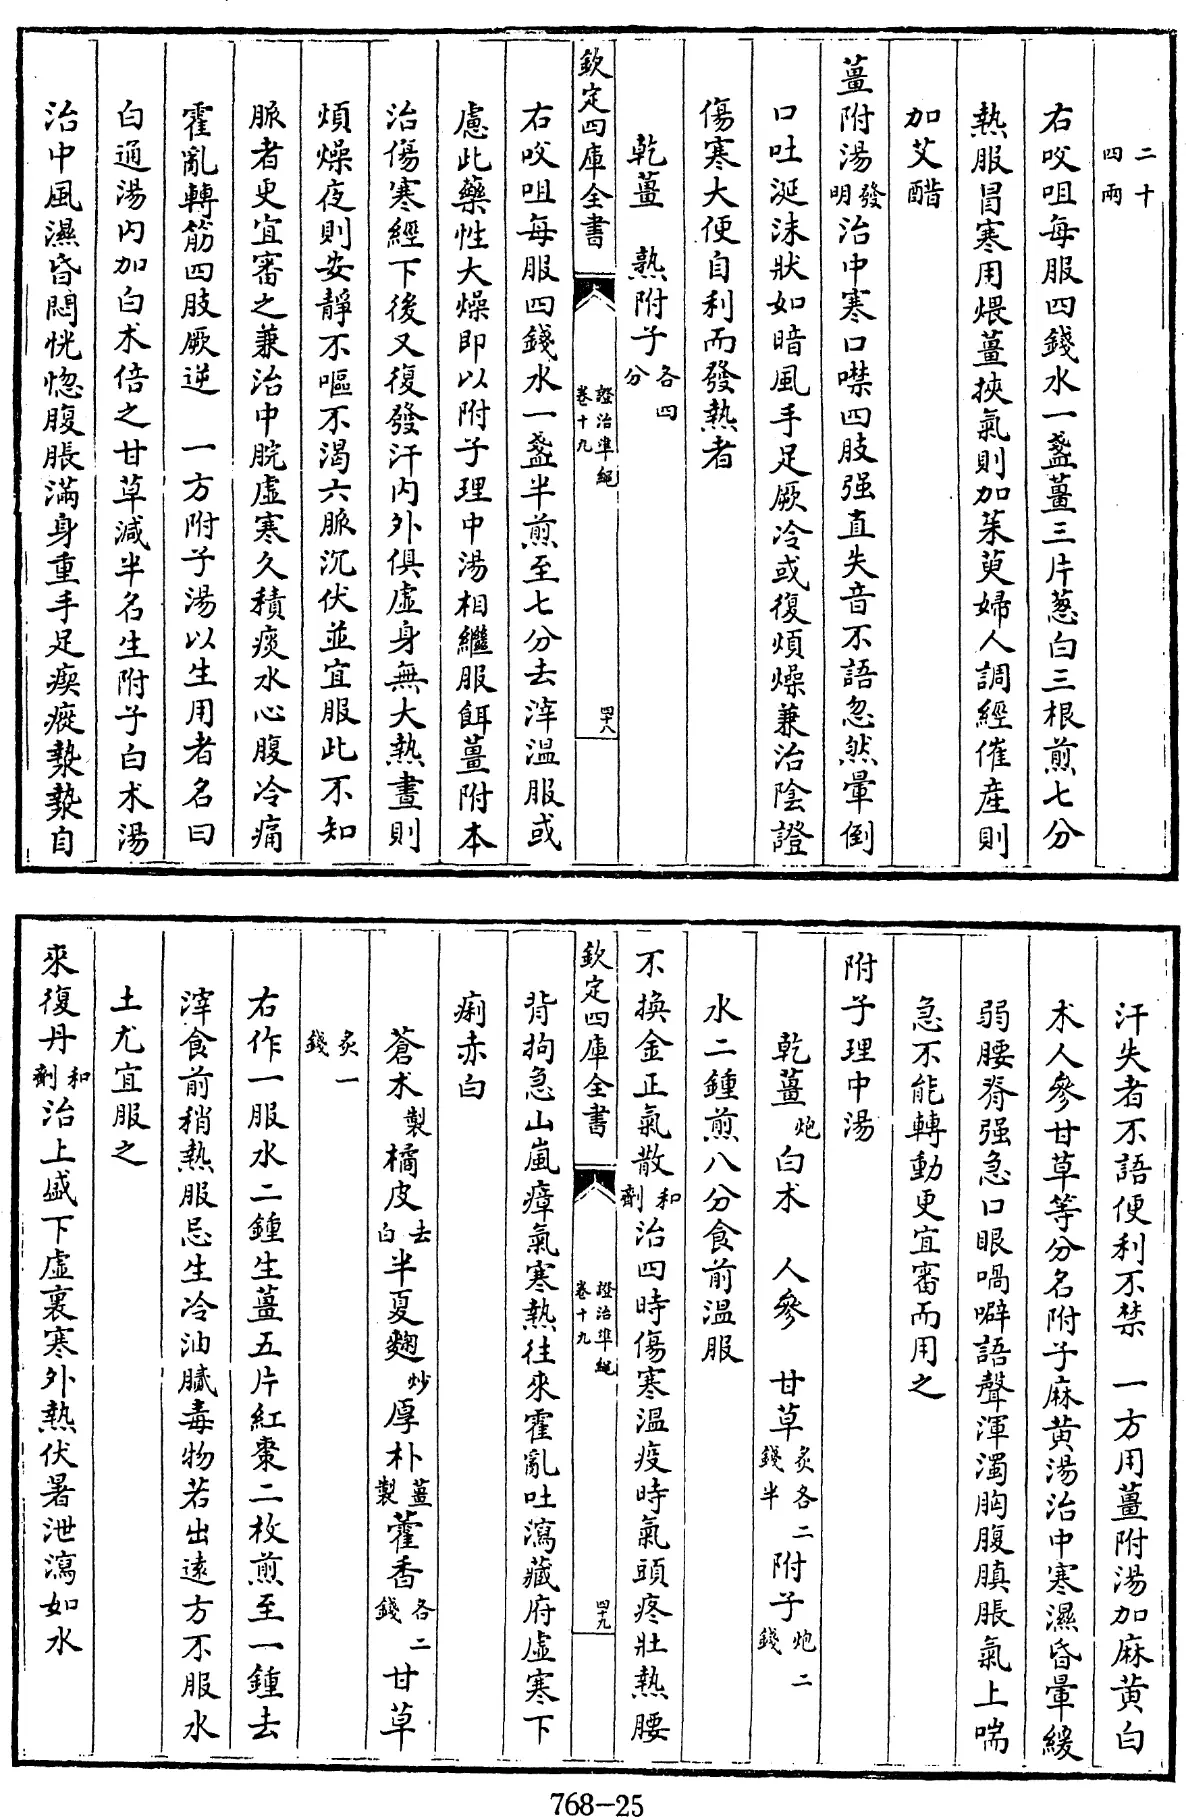 二十四兩
右㕮咀每服四錢水一盞薑三片葱白三根煎七分
熱服冒寒用煨薑挾氣則加茱萸婦人調經催産則
加艾醋
薑附湯發明治中寒口噤四肢强直失音不語忽然暈倒
口吐涎沫狀如暗風手足厥冷或復煩燥兼治陰證
傷寒大便自利而發熱者
乾薑　熟附子各四分
欽定四庫全書　證治準繩卷十九　四十八
右㕮咀每服四錢水一盞半煎至七分去滓温服或
慮此藥性大燥即以附子理中湯相繼服餌薑附本
治傷寒經下後又復發汗内外俱虚身無大熱晝則
煩燥夜則安靜不嘔不渴六脈沉伏並宜服此不知
脈者更宜審之兼治中脘虚寒久積痰水心腹冷痛
霍亂轉筋四肢厥逆　一方附子湯以生用者名曰
白通湯内加白术倍之甘草減半名生附子白术湯
治中風濕昏悶恍惚腹脹滿身重手足瘈瘲漐漐自
汗失者不語便利不禁　一方用薑附湯加麻黄白
术人參甘草等分名附子麻黄湯治中寒濕昏暈緩
弱腰脊强急口眼喎噼語聲渾濁胸腹䐜脹氣上喘
急不能轉動更宜審而用之
附子理中湯
乾薑炮白术　人參　甘草炙各二錢半附子炮二錢
水二鍾煎八分食前温服
不換金正氣散和劑治四時傷寒温疫時氣頭疼壯熱腰
欽定四庫全書　證治準繩卷十九　四十九
背拘急山嵐瘴氣寒熱往來霍亂吐瀉藏府虚寒下
痢赤白
蒼术製橘皮去白半夏麴炒厚朴薑製藿香各二錢甘草
炙一錢
右作一服水二鍾生薑五片紅棗二枚煎至一鍾去
滓食前稍熱服忌生冷油膩毒物若出遠方不服水
土尤宜服之
來復丹和劑治上盛下虚裏寒外熱伏暑泄瀉如水
768-25